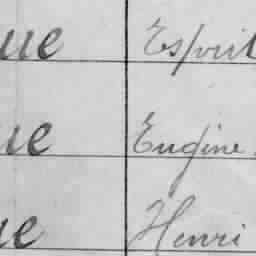 ue Esprit
ue Eugine
ue Henri